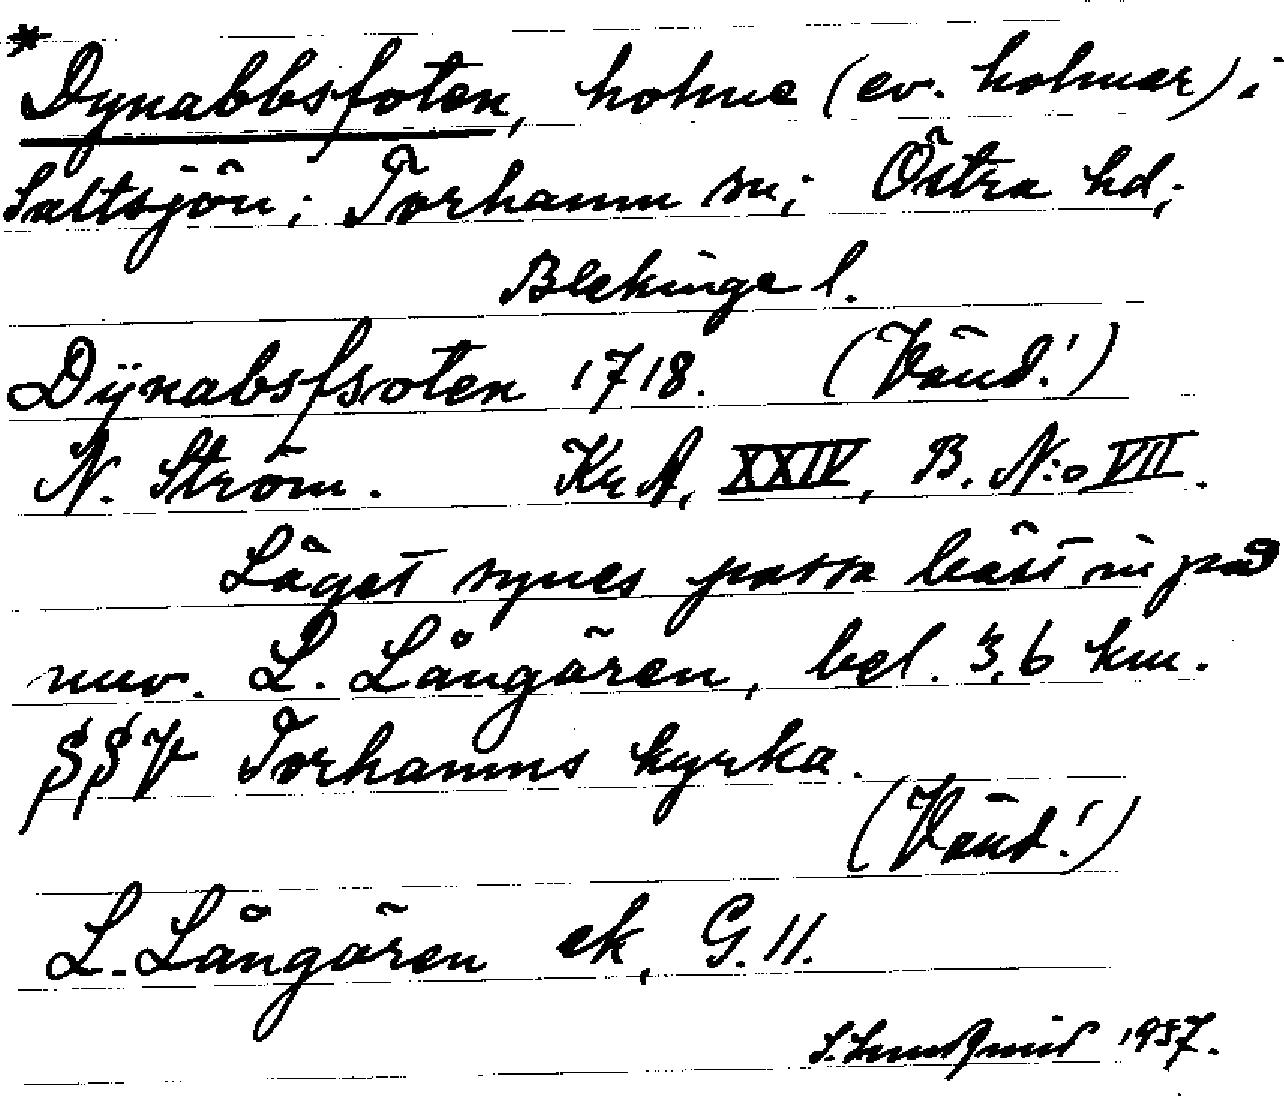 *Dynabbsfoten, holme (ev. holmar) i
Saltsjön; Torhamn sn; Östra hd;
Blekinge l.
Dÿnabsfsoten 1718. (Vänd!)
N. Ström. Kr A, XXIV, B. N:o VII.
Läget synes passa bäst in på
nuv. L. Långören, bel. 3,6 km.
SSV Torhamns kyrka.
(Vänd!)
L. Långören ek, G. 11.
S. Lundqvist 1957.